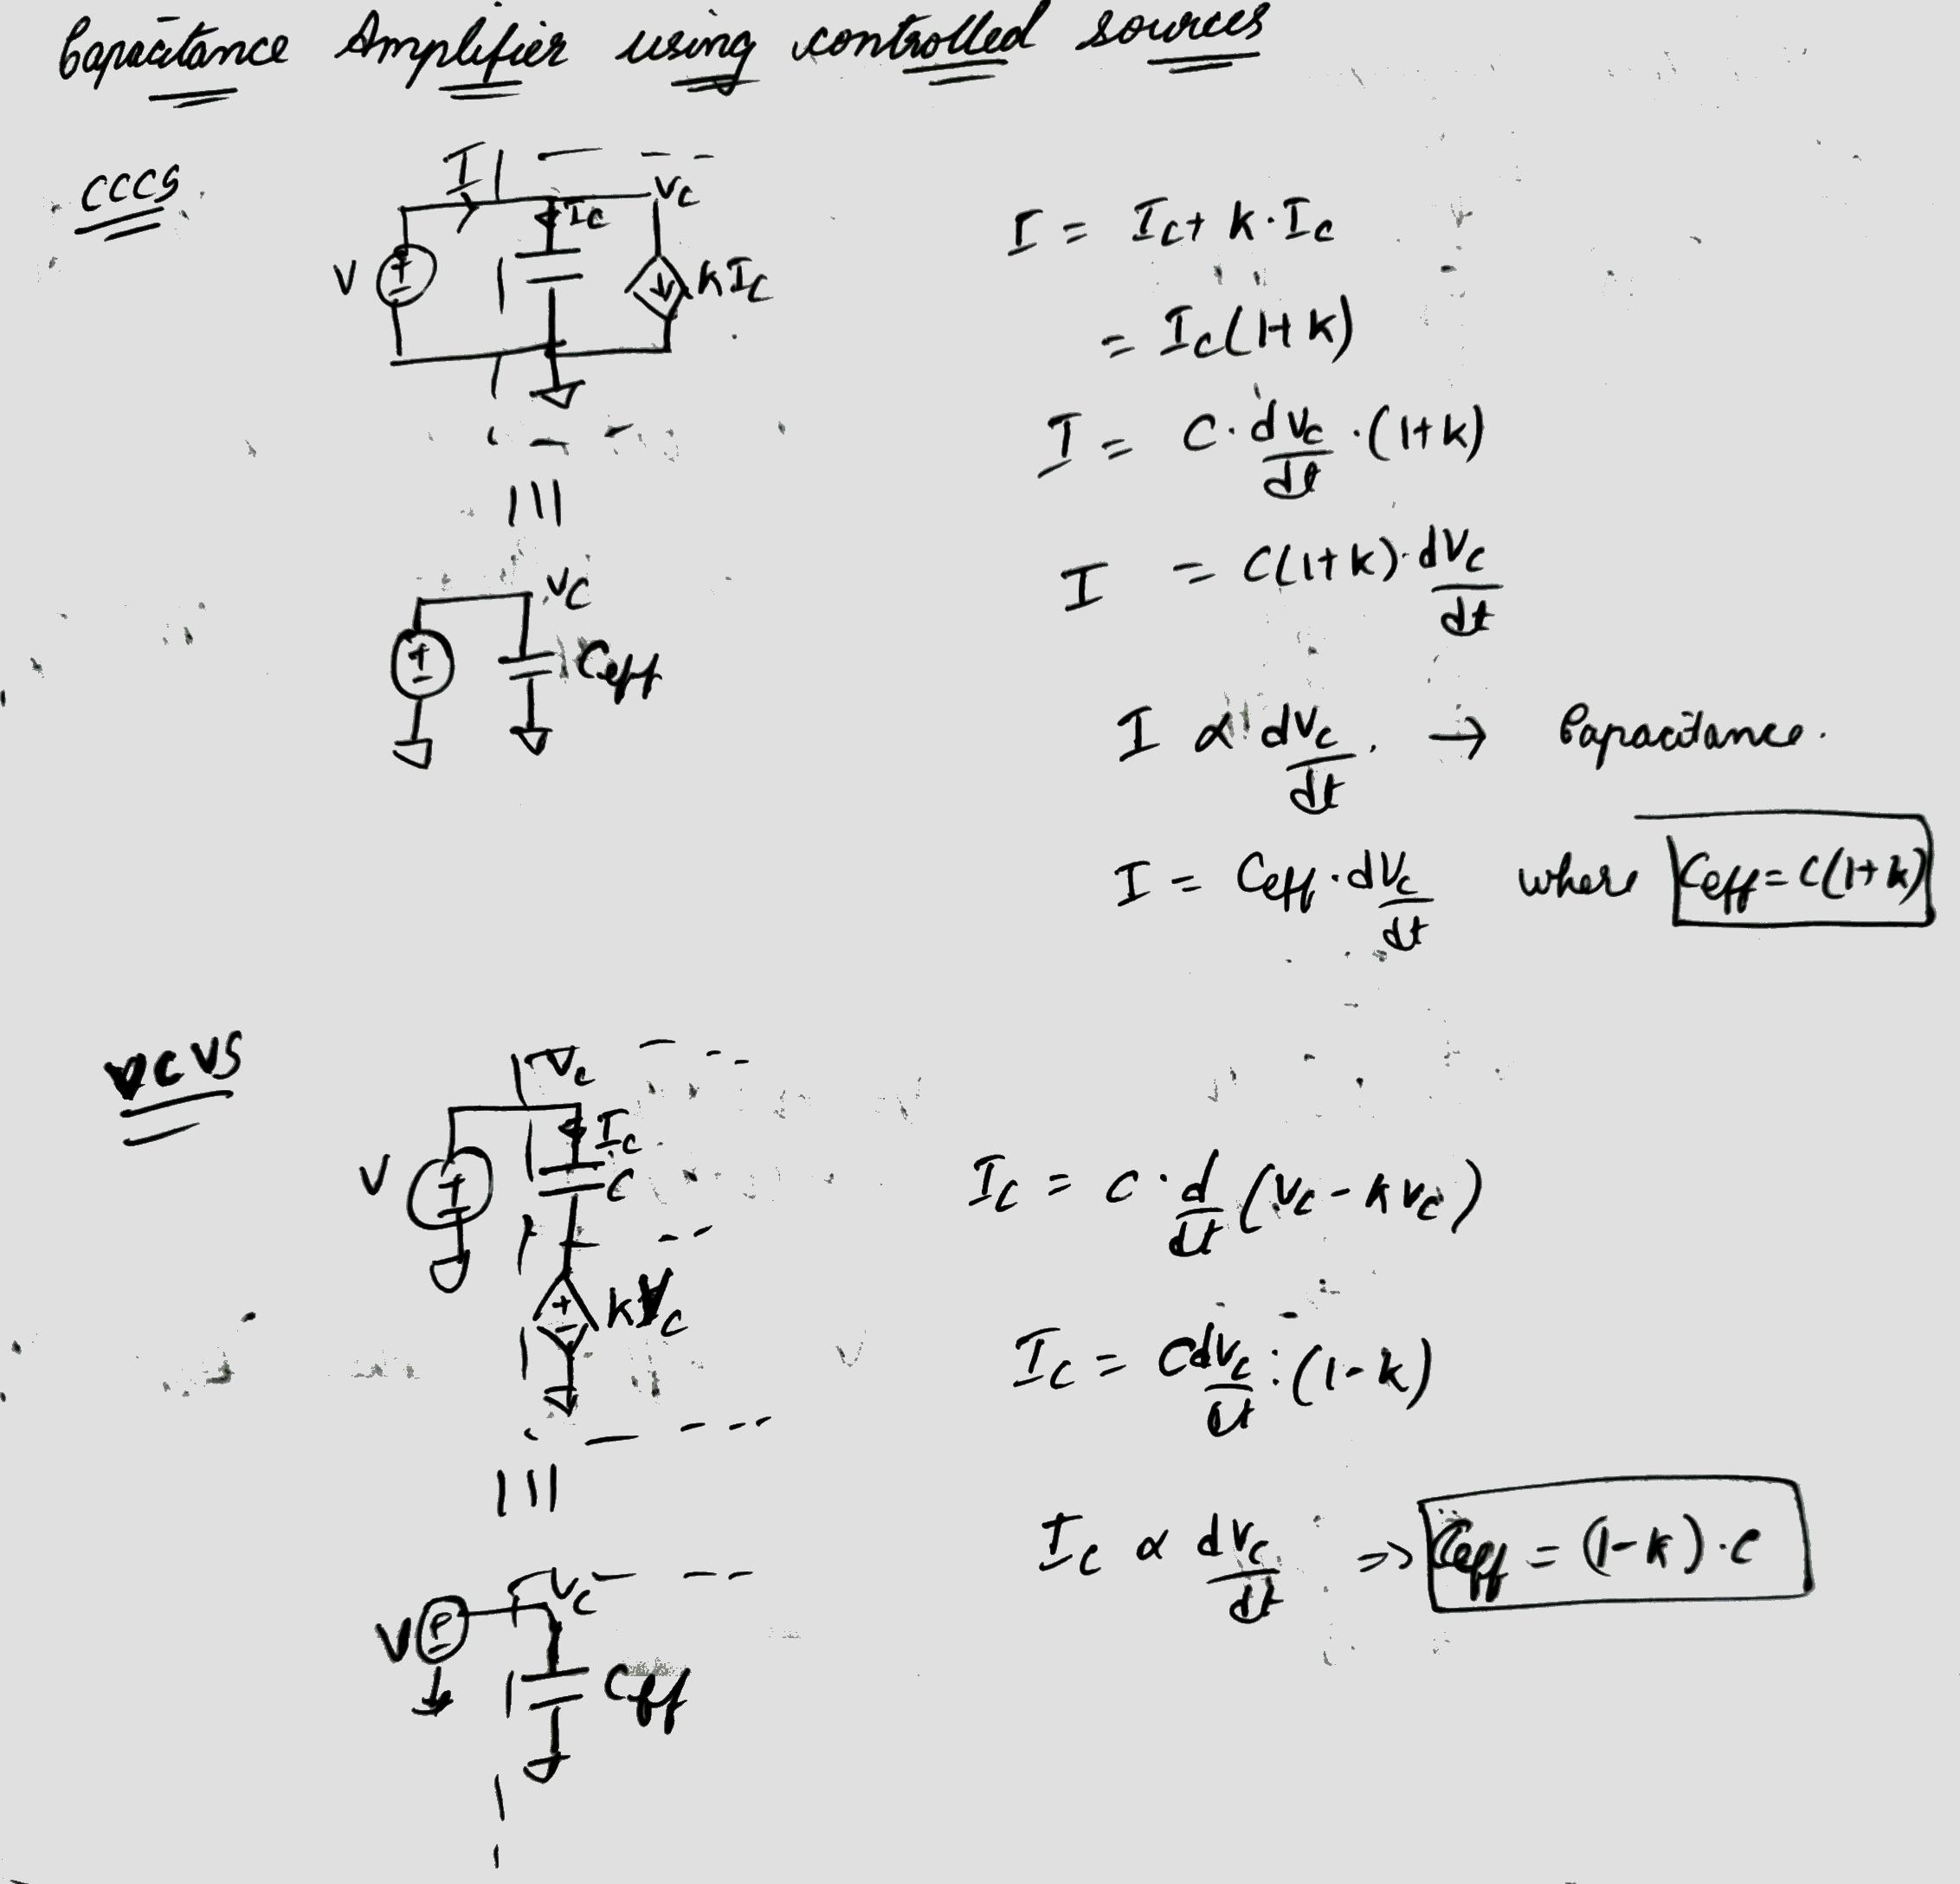 Capacitance Amplifier using controlled sources
CCCS
I
Vc
Ic
V
KIc
I = Ic + K·Ic
= Ic(1+K)
I = C·dVc/dt·(1+K)
I = C(1+K)·dVc/dt
Vc
Ceff
I ∝ dVc/dt → Capacitance.
I = Ceff·dVc/dt where Ceff = C(1+K)
VCVS
Vc
Ic
V
C
KVc
Ic = C·d/dt(Vc - KVc)
Ic = CdVc/dt·(1-K)
Ic ∝ dVc/dt => Ceff = (1-K)·C
Vc
V
Ceff